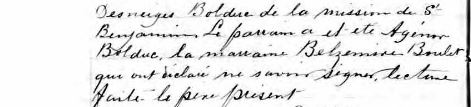 Desneiges Bolduc de la mission de St
Benjamin. Le parrain a été Agénor
Bolduc, la marraine Belzemire Boulet
qui ont déclaré ne savoir signer, lecture
faite le père présent